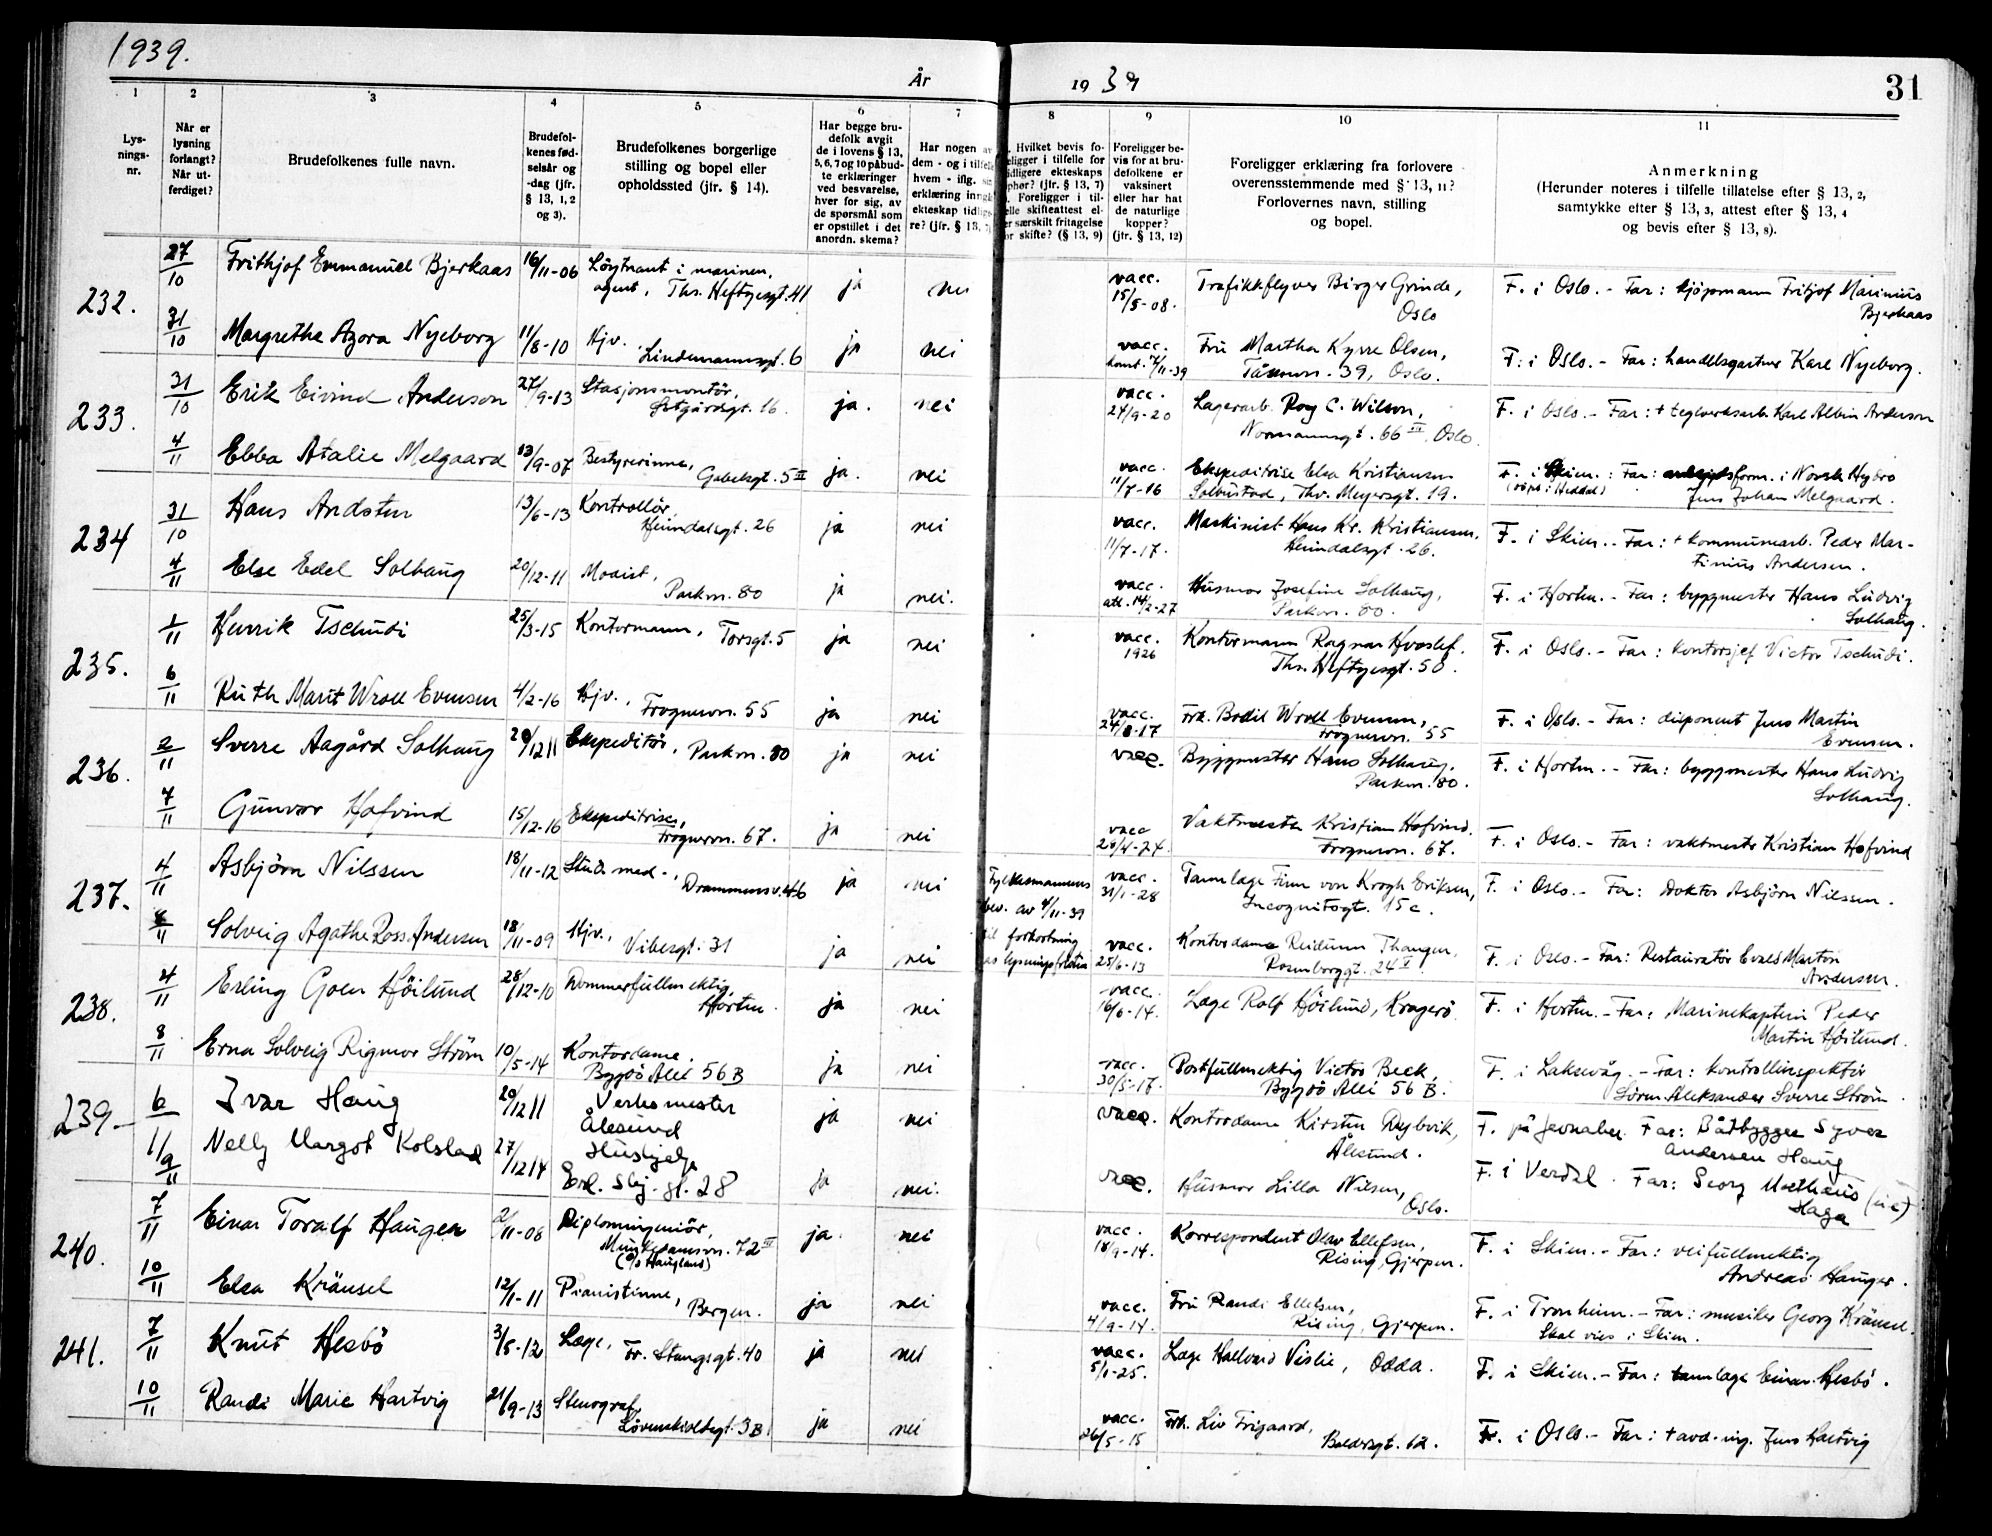 1939.
År
1939
31
1
2
3
4
5
6
7
8
9
10
11
Lys-
nings-
nr.
Når er
lysning
forlangt?
Når ut-
ferdiget?
Brudefolkenes fulle navn.
Brudefol-
kenes fød-
selsår og
-dag (jfr.
§ 13, 1, 2
og 3).
Brudefolkenes borgerlige
stilling og bopel eller
opholdssted (jfr. § 14).
Har begge bru-
defolk avgit
de i lovens § 13,
5, 6, 7 og 10 påbud-
te erklæringer
ved besvarelse,
hver for sig, av
de spørsmål som
er opstillet i det
anordn. skema?
Har nogen av
dem - og i tilfelle
hvem - iflg. sin
erklæring inngått
ekteskap tidlige-
re? (jfr. § 13, 7)
Hvilket bevis fo-
religger i tilfelle for
tidligere ekteskaps
ophør? (jfr. § 13, 7)
Foreligger i til-
felle skifteattest el-
ler særskilt fritagelse
for skifte? (§ 13, 9)
Foreligger be-
vis for at bru-
defolkene er
vaksinert
eller har hat
de naturlige
kopper?
(jfr. § 13, 12)
Foreligger erklæring fra forlovere
overensstemmende med § 13, 11?
Forlovernes navn, stilling
og bopel.
Anmerkning
(Herunder noteres i tilfelle tillatelse efter § 13, 2,
samtykke efter § 13, 3, attest efter § 13, 4
og bevis efter § 13, 8).
232.
27/10 Frithjof Emmanuel Bjerkaas 16/11-06 Løytnant i marinen, agent, Ths. Heftyesgt. 41 ja nei vacc. 15/5-08. Trafikkflyver Birger Grinde, Oslo F. i Oslo. - Far: kjøpmann Fritjof Marinius Bjerkaas
31/10 Margrethe Azora Nyeborg 11/8-10 Hjv. Lindemannsgt. 6 ja nei vacc. 7/11-39 Fru Martha Kyrre Olsen, 39, Oslo. F. i Oslo. - Far: handelsgartner Karl Nyeborg.
233.
31/10 Erik Eivind Anderson 27/9-13 Stasjonsmontør, 16. ja. nei vacc. 24/9-20 Lagerarb. Roy C. Wilson, Normannsgt. 66 III, Oslo. F. i Oslo. - Far: + teglverksarb. Karl Albin Anderson
4/11 Ebba Atalie Melgaard 13/9-07 Bestyrerinne, Gabelsgt. 5 II ja. nei vacc. 11/7-16 Ekspeditrise Elsa Kristiansen Solbustad, Thv. Meyersgt. 19. F. i Skien. : Far: arbeidsform. i Norsk Hydro Jens Johan Melgaard.
234
31/10 Hans Andsten 13/6-13 Kontrollør, Heimdalsgt. 26 ja nei vacc. 11/7-17. Maskinist Hans Kr. Kristiansen, Heimdalsgt. 26. F. i Skien. - Far: + kommunearb. Peder Mar-
tinius Andersen.
4/11 Else Edel Solhaug 20/12-11 Modist, Parkvn. 80 ja nei. vacc. att. 14/2-27 Husmor Josefine Solhaug, Parkvn. 80. F. i Horten. - Far: byggmester Hans Ludvig Solhaug.
235.
1/11 Henrik Tschudi 25/3-15 Kontormann, Torsgt. 5 ja nei vacc. 1926 Kontormann Ragnar Hvoslef, Ths. Heftyesgt. 50. F. i Oslo. - Far: kontorsjef Victor Tschudi.
6/11 Ruth Marit Wroll Evensen 4/2-16 Hjv., Frognervn. 55 ja nei vacc. 24/8-17 Frk. Bodil Wroll Evensen, Frognervn. 55 F. i Oslo. - Far: disponent Jens Martin Evensen.
236.
2/11 Sverre Aagård Solhaug 20/12 11 Ekspeditør, Parkvn. 80 ja nei vacc. Byggmester Hans Solhaug, Parkvn. 80. F. i Horten. - Far: byggmester Hans Ludvig Solhaug.
7/11 Gunvor Hofvind 15/12-16 Ekspeditrise, Frognervn. 67. ja nei vacc 28/4-24 Vaktmester Kristian Hofvind, Frognervn. 67. F. i Oslo. - Far: vaktmester Kristian Hofvind
237.
4/11 Asbjørn Nilssen 18/11-12 Stud. med., Drammensv. 46 ja nei Fylkesmannens bev. av 4/11-39 til forkortning av lysningsfristen vacc. 31/1-28 Tannlæge Finn von Krogh Eriksen, Incognitogt. 15c. F. i Oslo. - Far: Doktor Asbjørn Nilssen.
8/11 Solveig Agathe Ross Andersen 18/11-09 Hjv., Vibesgt. 31 ja nei vacc. 25/6-13 Kontordame Reidunn Thangen, Rosenborggt. 24 V F. i Oslo. - Far: Restauratør Evald Martin Andersen.
238.
4/11 Erling Goen Höilund 28/12-10 Dommerfullmektig, Horten. ja nei vacc. 16/6-14. Læge Rolf Höilund, Kragerø F. i Horten. - Far: Marinekaptein Peder Martin Höilund.
8/11 Erna Solveig Rigmor Strøm 10/5-14 Kontordame, Bygdö Allé 56 B ja nei vacc. 30/5-17. Postfullmektig Victor Beck, Bygdö Allé 56 B. F. i Laksevåg. - Far: kontrollinspektör Sören Aleksander Sverre Ström.
239
6/11 Ivar Haug 20/12 11 Verksmester Ålesund ja nei vacc. Kontordame Kirsten Dybvik, Ålesund. F. på Jevnaker. Far: Båtbygger Syver Andersen Haug
9/11 Nelly Margot Kolstad 27/12 14 Hushjelp 28 ja nei. vacc. Husmor Lilla Nilsen, Oslo. F. i Verdal. Far: Georg Matheus Haga (sic)
240.
7/11 Einar Toralf Haugen 2/11-08 Diplomingeniör, Munkedamsvn. 72 III (c/o Haugland) ja. nei vacc. 18/9-14. Korrespondent Olav Ellefsen, Rising, Gjerpen. F. i Skien. - Far: veifullmektig Andreas Haugen.
10/11 Elsa Kräusel 12/1-11 Pianistinne, Bergen. ja nei vacc. 4/9-14. Fru Randi Ellefsen, Rising, Gjerpen. F. i Tronheim. - Far: musiker Georg Kräusel.
Skal vies i Skien.
241.
7/11 Knut Hesbö 3/5-12 Læge, Fr. Stangsgt. 40 ja nei vacc. 5/1-25. Læge Hallvard Vislie, Odda. F. i Skien. - Far: tannlæge Einar Hesbö.
10/11 Randi Marie Hartvig 21/9-13 Stenograf, Løvenskioldsgt. 3B ja nei vacc. 26/5-15 Frk. Liv Frigaard, Baldersgt. 62. F. i Oslo. - Far: + avd.ing. Jens Hartvig